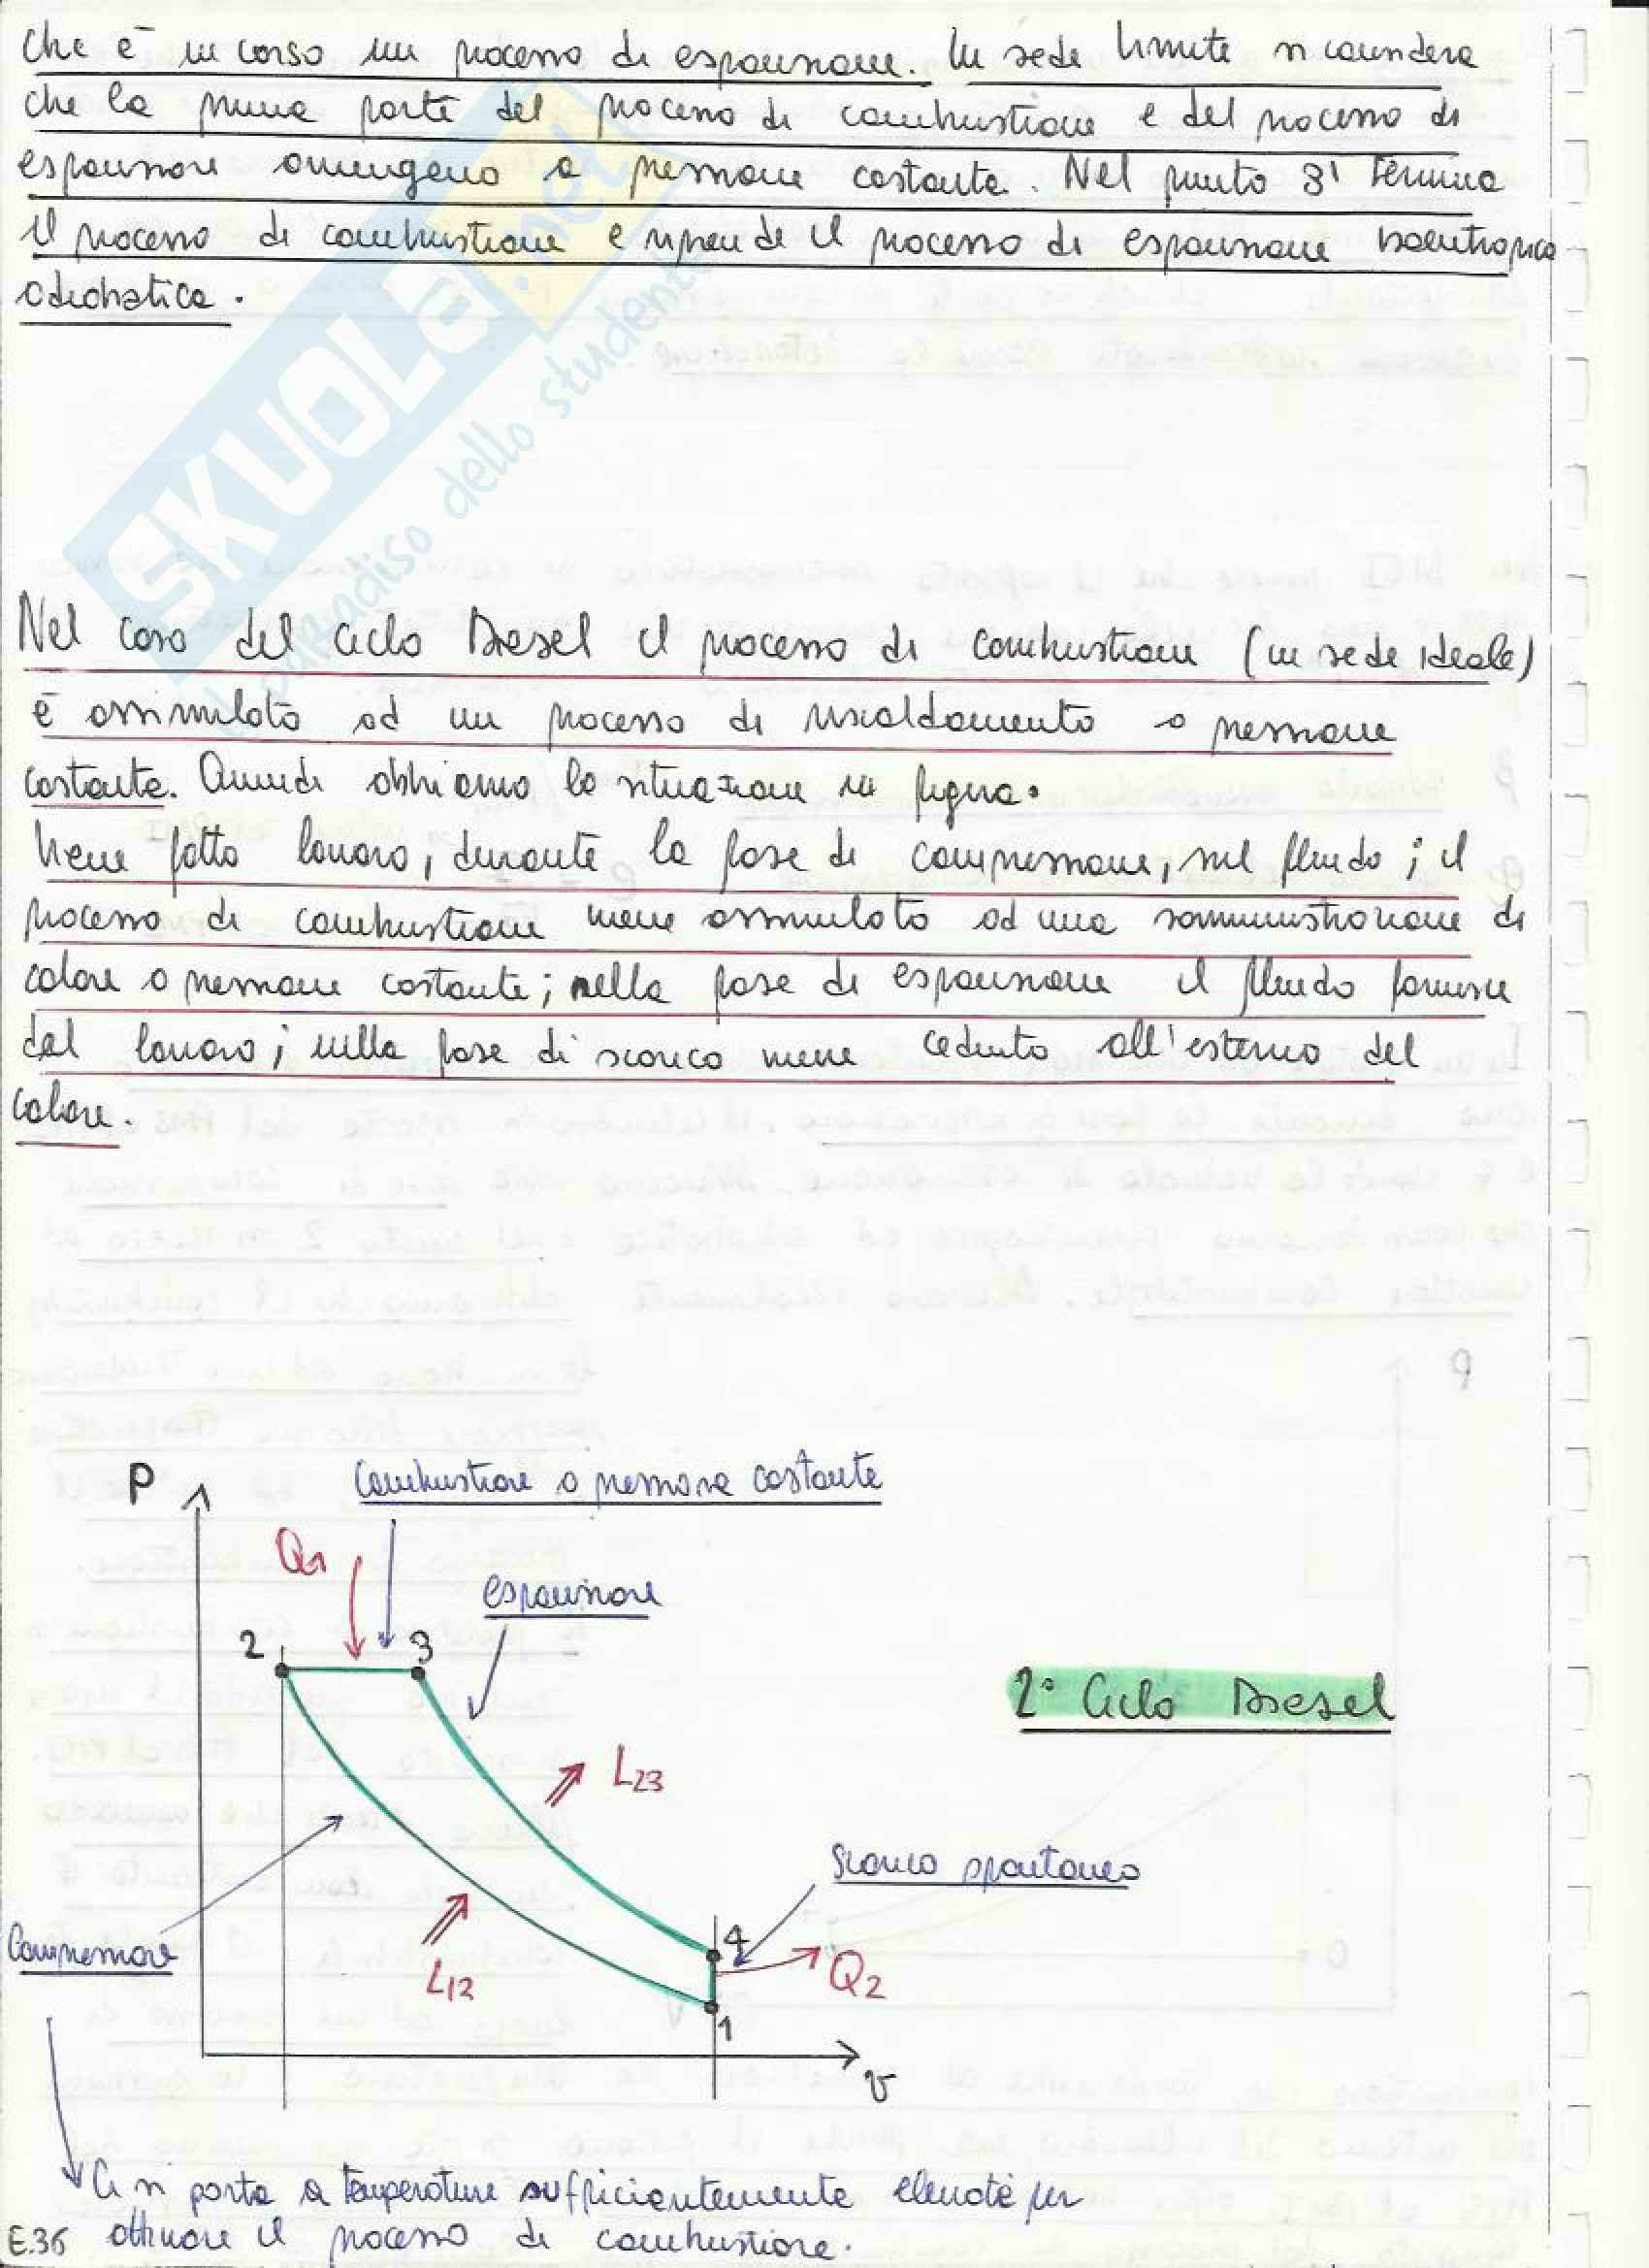 che è in corso un processo di espansione. In sede limite si considera
che la prima parte del processo di combustione e del processo di
espansione avvengono a pressione costante. Nel punto 3' termina
il processo di combustione e riprende il processo di espansione isoentropica
adiabatica.
SKUOLA.net
il paradiso dello studente
Nel caso del ciclo Diesel il processo di combustione (in sede ideale)
è assimilato ad un processo di riscaldamento a pressione
costante. Quindi abbiamo la situazione in figura.
Viene fatto lavoro, durante la fase di compressione, sul fluido; il
processo di combustione viene assimilato ad una somministrazione di
calore a pressione costante; nella fase di espansione il fluido fornisce
del lavoro; nella fase di scarico viene ceduto all'esterno del
calore.
P
Combustione a pressione costante
Q1
espansione
2
3
2° Ciclo Diesel
L23
Scarico spontaneo
4
Compressione
L12
Q2
1
v
Ci si porta a temperature sufficientemente elevate per
E.36 attivare il processo di combustione.